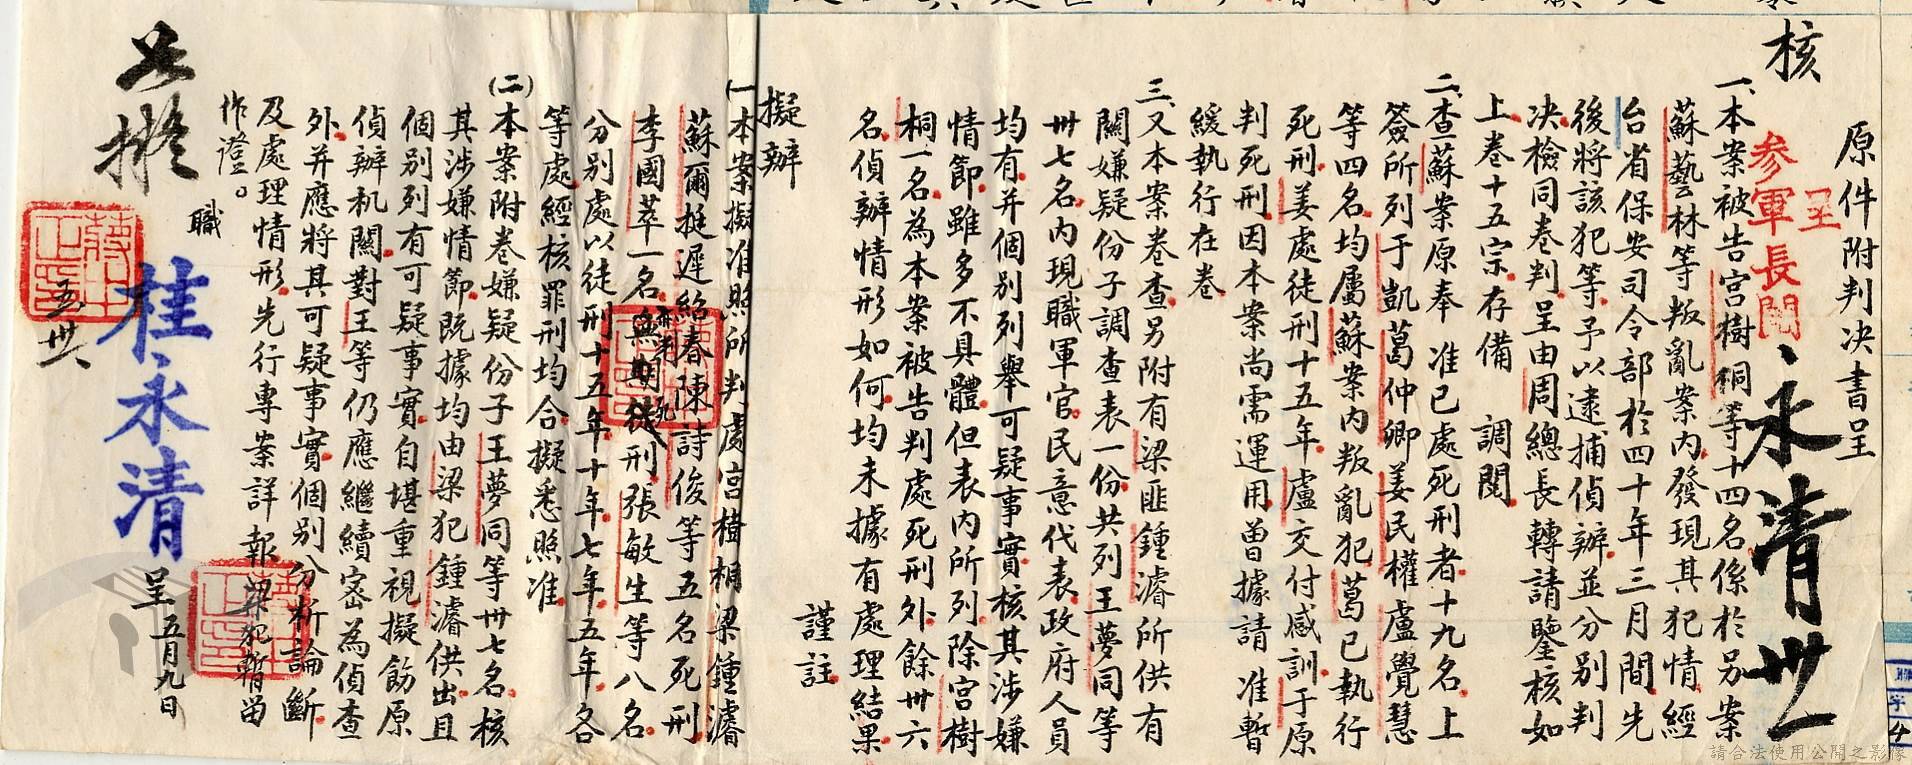 核
原件附判决書呈
呈
参軍長閱
永清 卅一
一、本案被告宮樹桐等十四名係於另案
蘇藝林等叛亂案內發現其犯情經
台省保安司令部於四十年三月間先
後將該犯等予以逮捕偵辦並分別判
决檢同卷判呈由周總長轉請鑒核如
上卷十五宗存備 調閱
二、查蘇案原奉 准已處死刑者十九名上
簽所列于凱葛仲卿姜民權盧覺慧
等四名均屬蘇案內叛亂犯葛已執行
死刑姜處徒刑十五年盧交付感訓于原
判死刑因本案尚需運用曾據請 准暫
緩執行在卷
三、又本案卷查另附有梁匪鍾濬所供有
關嫌疑份子調查表一份共列王夢同等
卅七名內現職軍官民意代表政府人員
均有并個別列舉可疑事實核其涉嫌
情節雖多不具體但表內所列除宮樹
桐一名為本案被告判處死刑外餘卅六
名偵辦情形如何均未據有處理結果
謹註
擬辦
(一)本案擬准照所判處宮樹桐梁鍾濬
蘇爾挺遲紹春陳詩俊等五名死刑
李國萃一名無期徒刑張敏生等八名
分別處以徒刑十五年十年七年五年各
等處經核罪刑均合擬悉照准
(二)本案附卷嫌疑份子王夢同等卅七名核
其涉嫌情節既據均由梁犯鍾濬供出且
個別列有可疑事實自堪重視擬飭原
偵辦机關對王等仍應繼續密為偵查
外并應將其可疑事實個別分析論斷
及處理情形先行專案詳報梁犯暫留
作證。
職 桂永清 呈 五月九日
如擬
五 卅
蔣中正印
蔣中正印
蔣中正印
請合法使用公開之影像